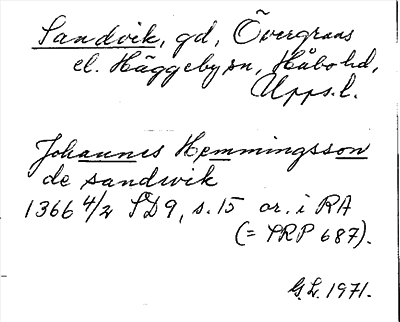 Sandvik, gd, Övergrans
el. Häggeby sn, Håbo hd,
Upps. l.
Johannes Hemmingsson
de sandwik
1366 4/2 SD 9, s. 15 or. i RA
(= SRP 687).
G.L. 1971.